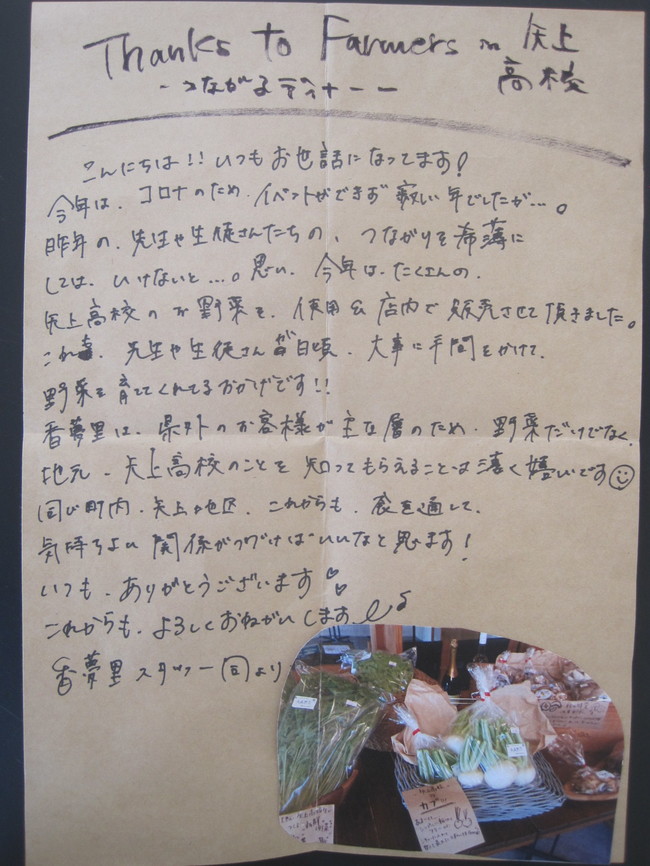 Thanks to Farmers in 矢上
高校
-つながるディナー-
こんにちは!! いつもお世話になってます!
今年は、コロナのため、イベントができず寂しい年でしたが…。
昨年の、先生や生徒さんたちの、つながりを希薄に
しては、いけないと…。思い、今年は、たくさんの、
矢上高校のお野菜を、使用&店内で販売させて頂きました。
これも、先生や生徒さんが日頃、大事に手間をかけて、
野菜を育ててくれてるおかげです!!
香夢里は、県外のお客様が主な層のため、野菜だけでなく、
地元、矢上高校のことを知ってもらえることは凄く嬉しいです
同じ町内、矢上地区、これからも、食を通して、
気持ちよい関係がつづけばいいなと思います!
いつも、ありがとうございます♡♡
これからも、よろしくおねがいします♪
香夢里スタッフ一同より
カブ